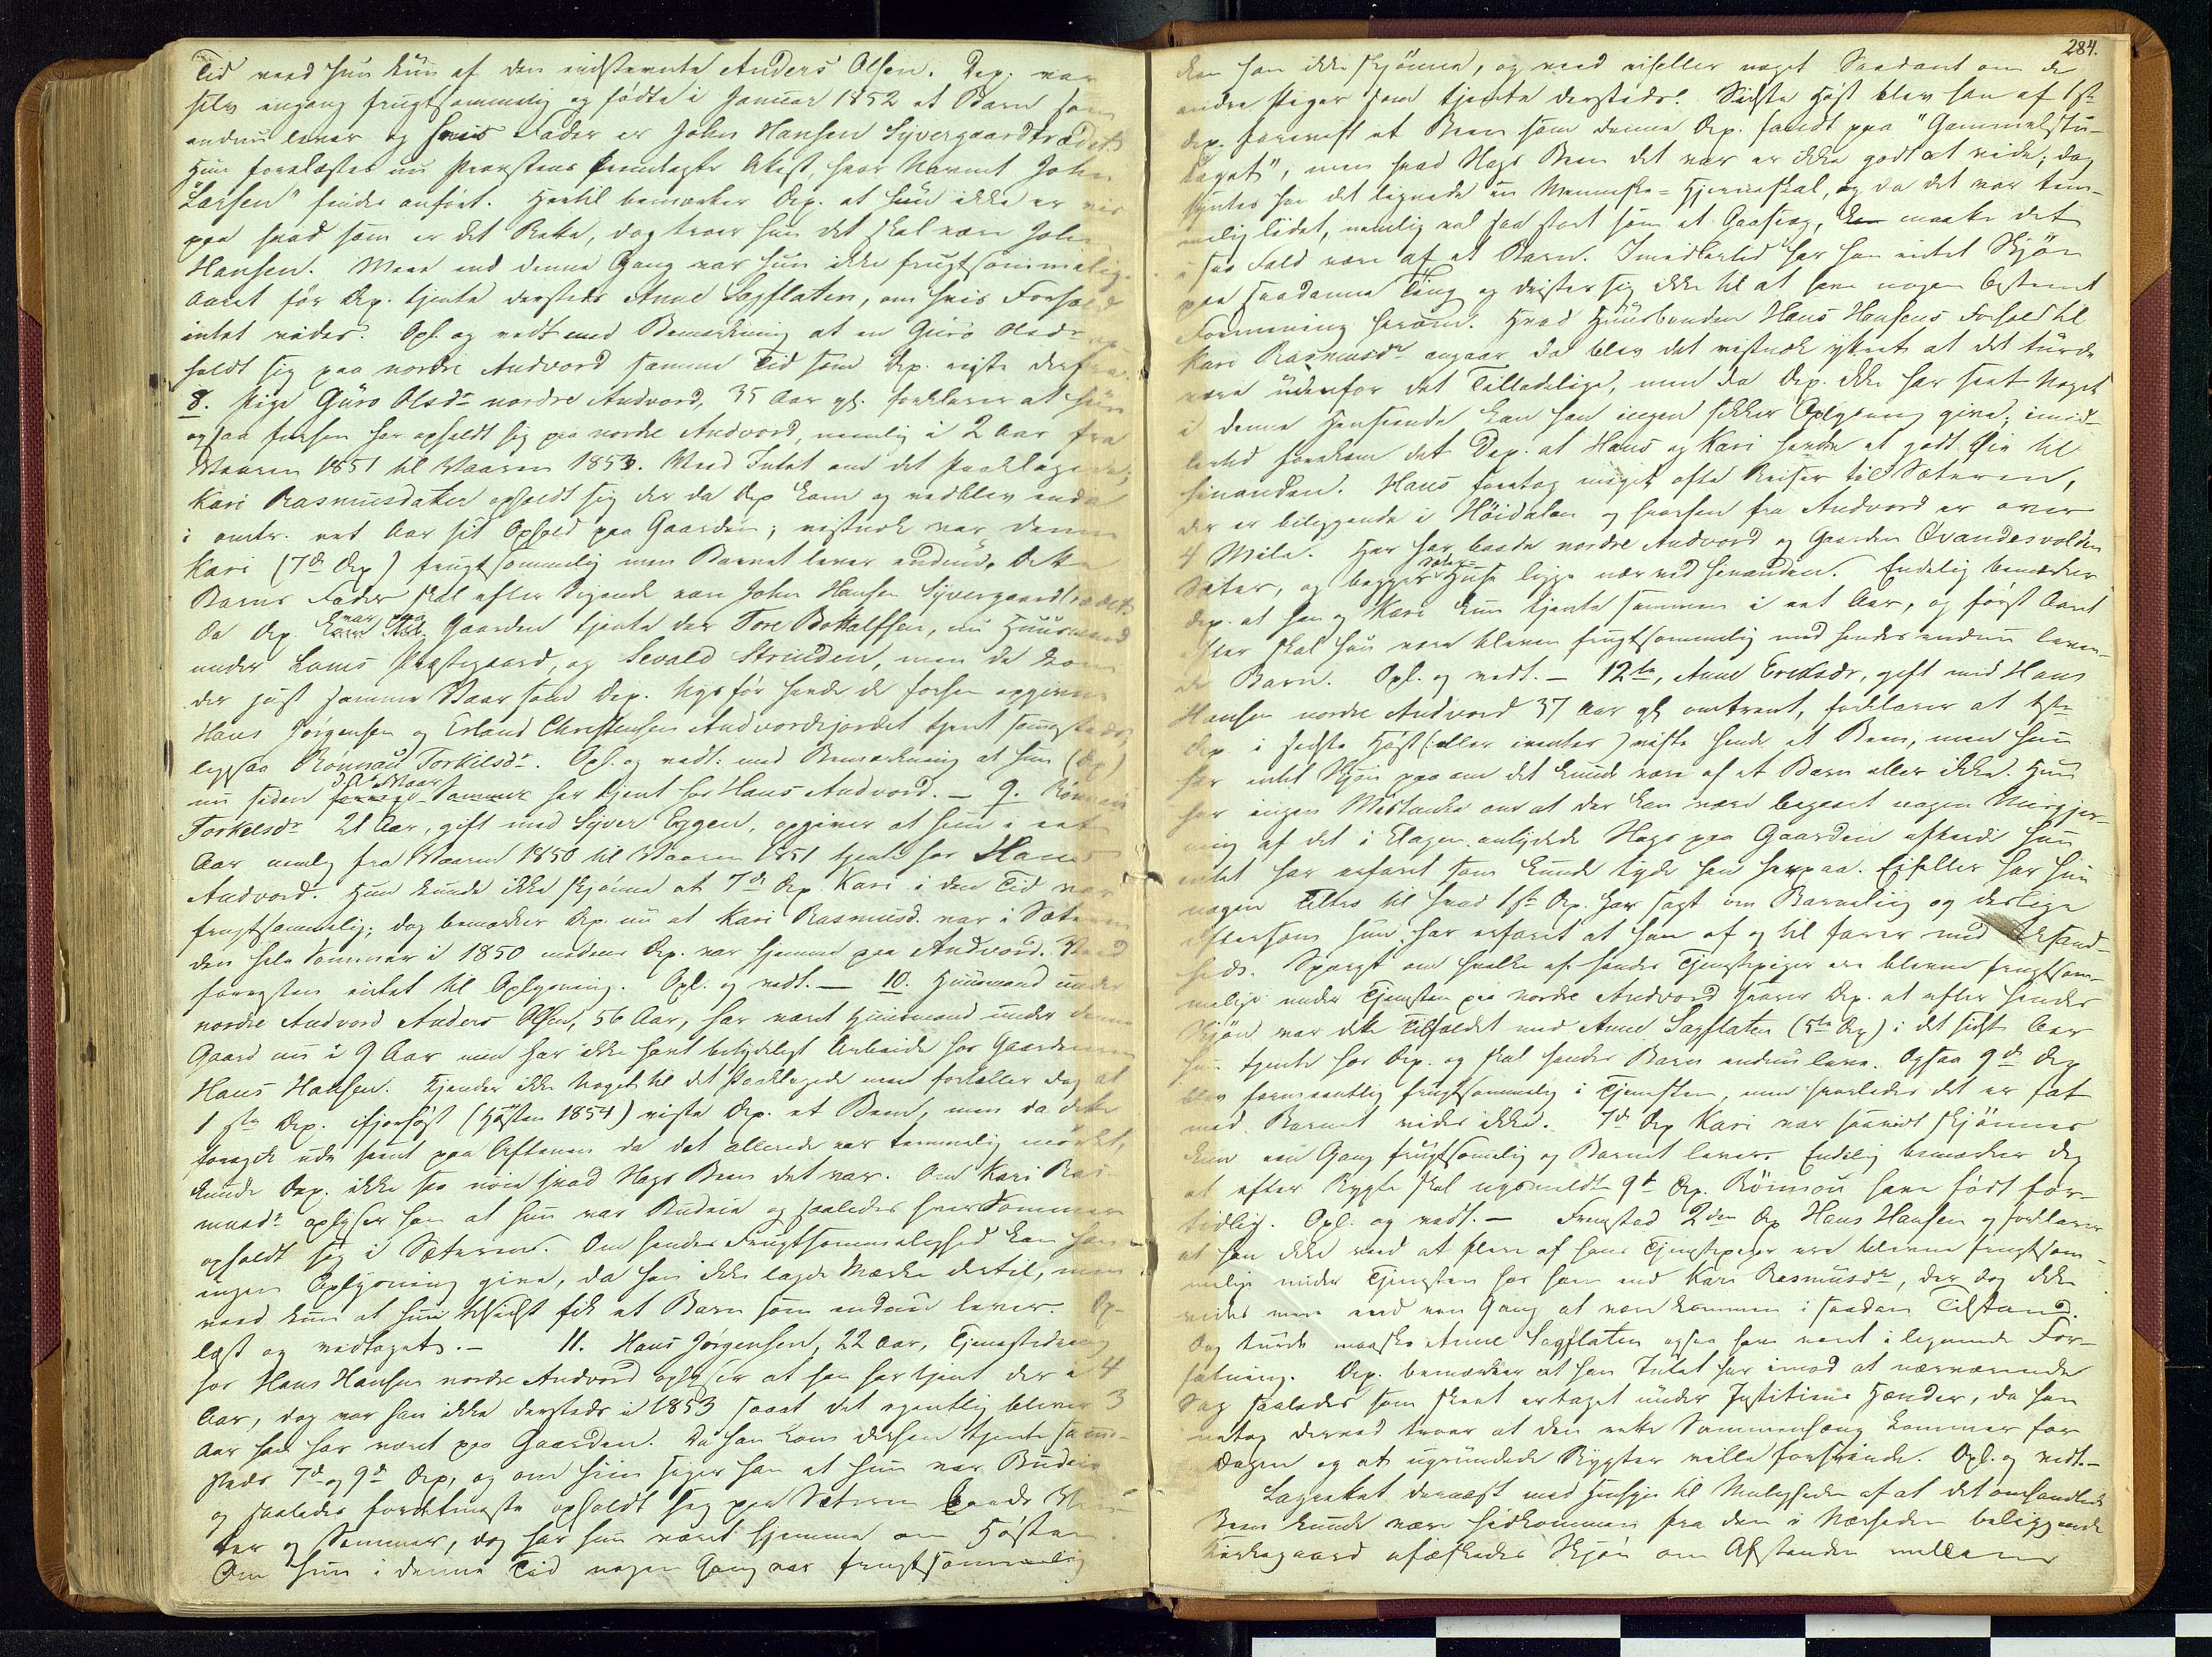 Tid veed hun kun af den indstevnte Anders Olsen. Dep. var
selv engang frugtsommelig og födte i Januar 1852 et Barn som
endnu lever og hvis Fader er John Hansen Syvergaardtrædet
Hun forelæstes nu Præstens fremlagte Attest, hvor Navnet John
"Larsen" findes anfört. Hertil bemærker Dep. at hun ikke er vis
paa hvad som er det Rette, dog troer hun det skal være John
Hansen. Mere end denne Gang var hun ikke frugtsommelig.
Aaret för Dep. tjente dersteds Anne Sagflaten, om hvis Forhold
intet vides. Opl. og vedt. med Bemærkning at en Guro Olsdr op
holdt sig paa nordre Andvord samme Tid som Dep. reiste derfra.
8. Pige Guro Olsdr nordre Andvord, 35 Aar gl. forklarer at hun
ogsaa forhen har opholdt sig paa nordre Andvord, nemlig i 2 Aar fra
Vaaren 1851 til Vaaren 1853. Veed Intet om det Paaklagede,
Kari Rasmusdatter opholdt sig der da Dep kom og vedblev endda
i omtr. eet Aar sit Ophold paa Gaarden; vistnok var denne
Kari (7de Dep) frugtsommelig men Barnet lever endnu. Dette
Barns Fader skal efter Sigende være John Hansen Syvergaardtrædet
Da Dep. var paa Gaarden tjente der Tore Bottolfsen, nu Huusmand
under Loms Præstegaard, og Sevald Strulden, men de kom
der just samme Vaar som Dep. Nys för havde de forhen opgivne
Hans Jörgensen og Erland Christensen Andvordejordet tjent sammesteds,
ligesaa Rönnau Torkilsdr. Opl. og vedt. med Bemærkning at hun (Dep)
nu siden sidste Vaar har tjent hos Hans Andvord. — 9. Rönnau
Torkelsdr 21 Aar, gift med Syver Eggen, opgiver at hun i eet
Aar nemlig fra Vaaren 1850 til Vaaren 1851 tjente hos Hans
Andvord. Hun kunde ikke skjönne at 7de Dep. Kari i den Tid var
frugtsommelig; dog bemærker Dep. nu at Kari Rasmusd. var i Sæteren
den hele Sommer i 1850 medens Dep. var hjemme paa Andvord. Veed
forresten intet til Oplysning. Opl. og vedt. — 10. Huusmand under
nordre Andvord Anders Olsen, 56 Aar, har været Huusmand under denne
Gaard nu i 9 Aar men har ikke havt betydeligt Arbeide hos Gaardmanden
Hans Hansen. Kjender ikke Noget til det Paaklagede men fortæller dog at
1ste Dep. ifjorhöst (Hösten 1854) viste Dep. et Been, men da dette
foregik ude seent paa Aftenen da det allerede var temmelig mörkt,
kunde Dep. ikke see nöie hvad Slags Been det var. Om Kari Ras-
musdr oplyser han at hun var Budeie og saaledes hver Sommer
opholdt sig i Sæteren. Om hendes Frugtsommelighed kan han
ingen Oplysning give, da han ikke lagde Mærke dertil, men
veed kun at hun tilsidst fik et Barn som endnu lever. Op-
læst og vedtaget. — 11. Hans Jörgensen, 22 Aar, Tjenestedreng
hos Hans Hansen nordre Andvord oplyser at han har tjent der i 4
Aar, dog var han ikke dersteds i 1853 saaat det egentlig bliver 3
Aar han har været paa Gaarden. Da han kom derhen tjente samme-
steds 7de og 9de Dep, og om hiin siger han at hun var Budeie
og saaledes fordetmeste opholdt sig paa Sæteren baade Vin-
ter og Sommer, dog har hun været hjemme om Hösten.
Om hun i denne Tid nogen Gang var frugtsommelig
284.
kan han ikke skjönne, og veed eiheller noget Saadant om de
andre Piger som tjente dersteds. Sidste Höst blev han af 1ste
Dep. forevist et Been som denne Dep. fandt paa "Gammelstu-
taget", men hvad Slags Been det var er ikke godt at vide, dog
syntes han det lignede en Menneske-Hjerneskal, og da det var tem-
melig lidet, nemlig vel saa stort som et Gaaseæg, maatte det
i saa Fald være af et Barn. Imidlertid har han intet Skjön
paa saadanne Ting og drister sig ikke til at have nogen bestemt
Formening herom. Hvad Huusbonden Hans Hansens Forhold til
Kari Rasmusdr angaar da blev det vistnok ytret at det turde
være udenfor det Tilladelige, men da Dep. ikke har seet Noget
i denne Henseende kan han ingen sikker Oplysning give; imid-
lertid forekom det Dep. at Hans og Kari havde et godt Öie til
hinanden. Hans foretog meget ofte Reiser til Sæteren,
der er beliggende i Höidalen og hvorhen fra Andvord er over
4 Mile. Her har baade nordre Andvord og Gaarden Qvandesvolden
Sæter, og begges Huse ligge nær ved hinanden. Endelig bemærker
Dep. at han og Kari kun tjente sammen i eet Aar, og först Aaret
efter skal hun være bleven frugtsommelig med hendes endnu leven-
de Barn. Opl. og vedt. — 12te, Anne Eriksdr, gift med Hans
Hansen nordre Andvord 37 Aar gl. omtrent, forklarer at 1ste
Dep i sidste Höst (:eller ivinter) viste hende et Been, men hun
har intet Skjön paa om det kunde være af et Barn eller ikke. Hun
har ingen Mistanke om at der kan være begaaet nogen Misgjer-
ning af det i Klagen antydede Slags paa Gaarden efterdi hun
intet har erfaret som kunde tyde hen herpaa. Eiheller har hun
nogen Tiltro til hvad 1ste Dep. har sagt om Barneliig og deslige
eftersom hun har erfaret at han af og til farer med Usand-
heder. Spurgt om hvilke af hendes Tjenestepiger ere blevne frugtsom-
melige under Tjenesten paa nordre Andvord svarer Dep. at efter hendes
Skjön var dette Tilfældet med Anne Sagflaten (5te Dep) i det sidste Aar
hun tjente hos Dep. og skal hendes Barn endnu leve. Ogsaa 9de Dep
blev formeentlig frugtsommelig i Tjenesten, men hvorledes det er fat
med Barnet vides ikke. 7de Dep Kari var saavidt skjönnes
kun een Gang frugtsommelig og Barnet lever. Endelig bemærker Dep
at efter Rygte skal nysmeldte 9de Dep. Rönnau have födt for-
tidlig. Opl. og vedt. — Fremstod 2den Dep Hans Hansen og forklarer
at han ikke veed at flere af hans Tjenestepiger ere blevne frugtsom-
melige under Tjenesten hos ham end Kari Rasmusdr, der dog ikke
vides mere end een Gang at være kommen i saadan Tilstand.
Dog turde maaske Anne Sagflaten ogsaa have været i lignende For-
fatning. Dep. bemærker at han Intet har imod at nærværende
Sag saaledes som skeet er taget under Justitiens Hænder, da han
netop derved troer at den rette Sammenhæng kommer for
Dagen og at ugrundede Rygter ville forsvinde. Opl. og vedt. —
Lagrettet dernæst med Hensyn til Muligheden af at det omhandlede
Been kunde være hidkommen fra den i Nærheden beliggende
Kirkegaard afæskedes Skjön om Afstanden mellem